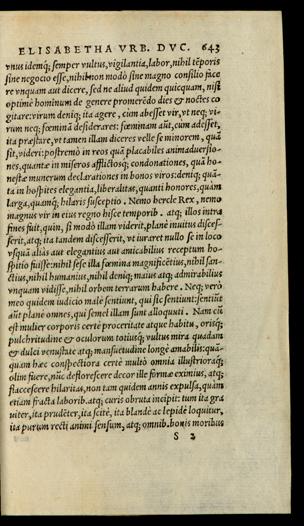 ELISABETHA VRB. DVC. 643
vnus idemq́; semper vultus, vigilantia, labor, nihil tẽporis
sine negocio esse, nihil non modò sine magno consilio face
re vnquam aut dicere, sed ne aliud quidem quicquam, nisi
optimè hominum de genere promerẽdo dies & noctes co
gitare: virum deniq; ita agere, cùm abesset vir, vt neq; vi-
rum neq; fœminã desiderares: fœminam aũt, cum adesset,
ita præstare, vt tamen illam diceres velle se minorem, quã
sit, videri: postremò in reos quã placabiles animaduersio-
nes, quantæ in miseros afflictosq́; condonationes, quã ho-
nestæ munerum declarationes in bonos viros: deniq; quã-
ta in hospites elegantia, liberalitas, quanti honores, quam
larga, quamq́; hilaris susceptio. Nemo hercle Rex, nemo
magnus vir in eius regno hisce temporib. atq; illos intra
fines fuit, quin, si modò illam viderit, planè inuitus disces-
serit, atq; ita tandem discesserit, vt iuraret nullo se in loco
vsquã aliàs aut elegantius aut amicabilius receptum ho-
spitio fuisse: nihil sese illa fœmina magnificẽtius, nihil san-
ctius, nihil humanius, nihil deniq; maius atq; admirabilius
vnquam vidisse, nihil orbem terrarum habere. Neq; verò
meo quidem iudicio malè sentiunt, qui sic sentiunt: sentiũt
aũt planè omnes, qui semel illam sunt alloquuti. Nam cũ
est mulier corporis certè proceritate atque habitu, orisq́;
pulchritudine & oculorum totiusq́; vultus mira quadam
& dulci venustate atq; mansuetudine longè amabilis: quã-
quam hæc conspectiora certè multò omnia illustrioraq́;
olim fuere, nũc deflorescere decor ille formæ eximius, atq;
flaccescere hilaritas, non tam quidem annis expulsa, quàm
etiam fracta laborib. atq; curis obruta incipit: tum ita gra
uiter, ita prudẽter, ita scitè, ita blandè ac lepidè loquitur,
ita purum recti animi sensum, atq; omnib. bonis moribus
S 2